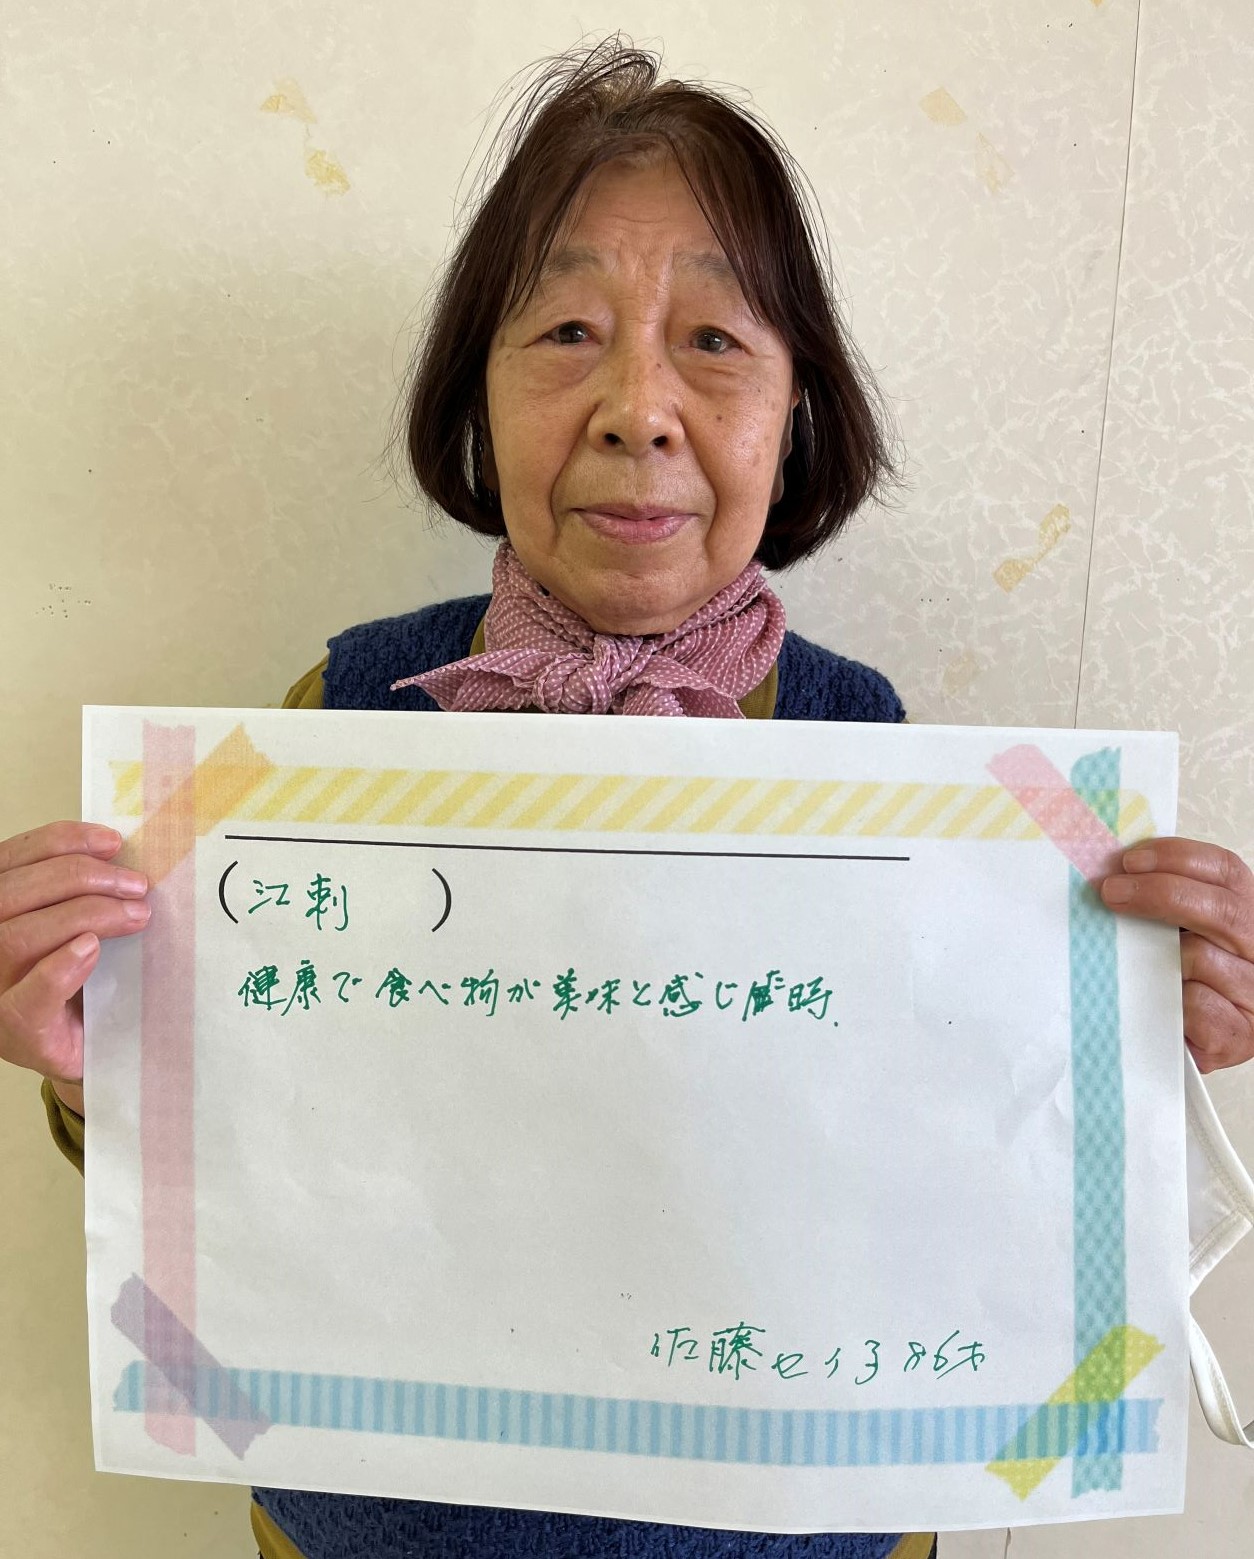 (江刺 )
健康で食べ物が美味と感じた時.
佐藤セイ子 86才